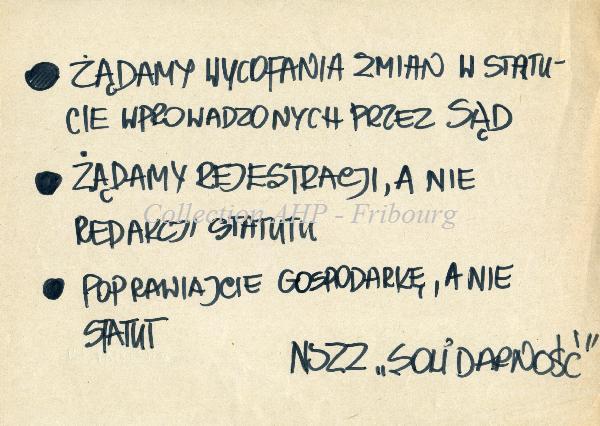 ● ŻĄDAMY WYCOFANIA ZMIAN W STATU-
CIE WPROWADZONYCH PRZEZ SĄD
● ŻĄDAMY REJESTRACJI, A NIE
REDAKCJI STATUTU
Collection AHP - Fribourg
● POPRAWIAJCIE GOSPODARKĘ, A NIE
STATUT
NSZZ „SOLIDARNOŚĆ"